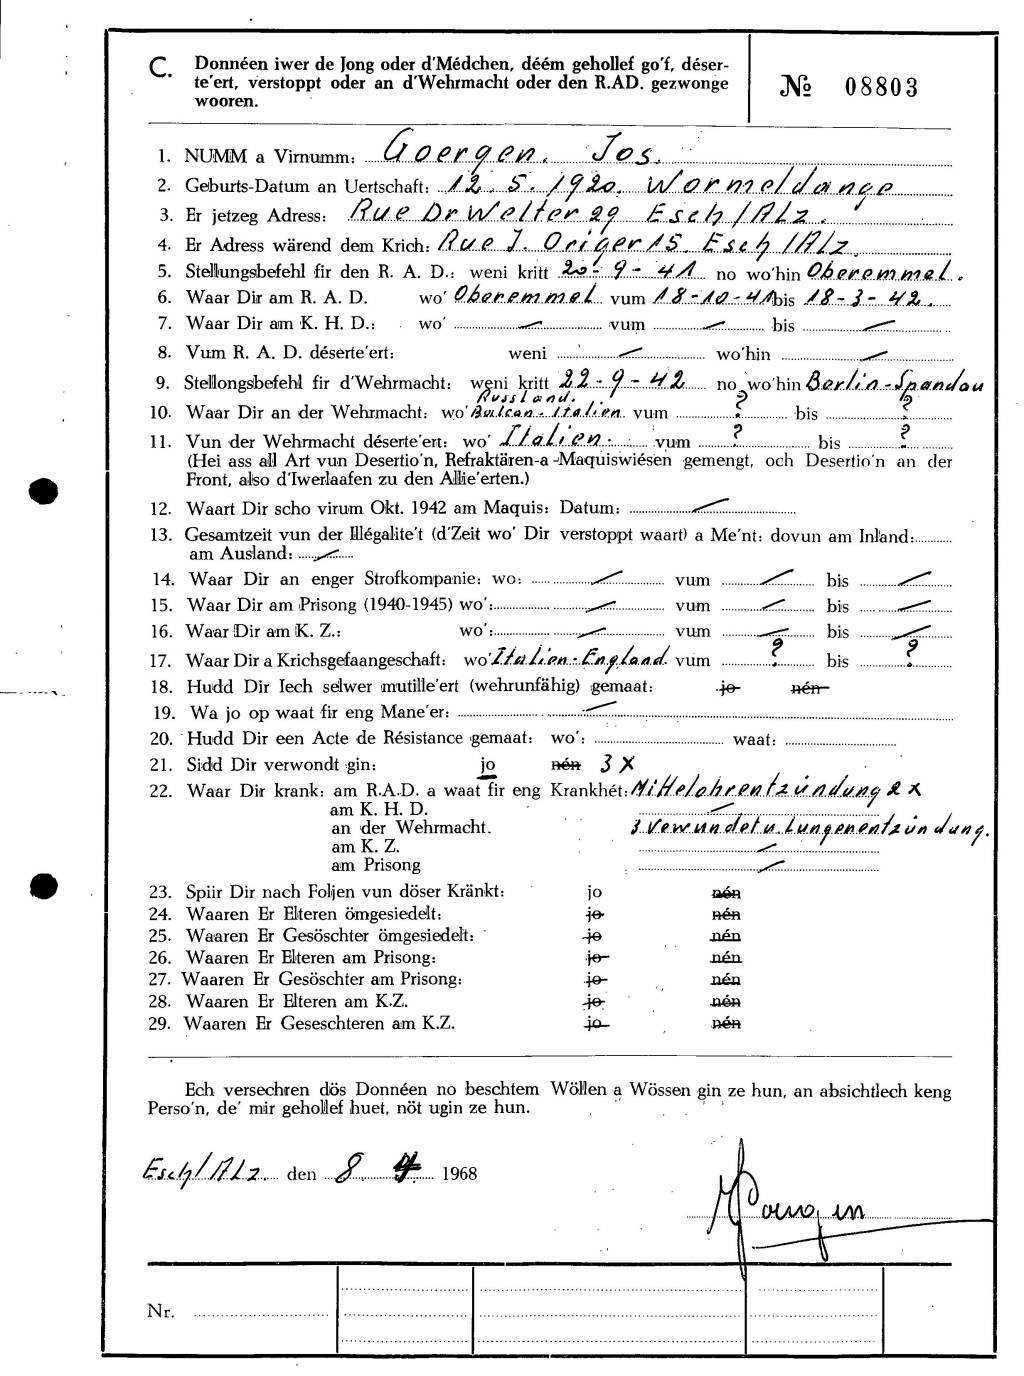 C. Donnéen iwer de Jong oder d'Médchen, déém gehollef go'f, déser-
te'ert, verstoppt oder an d'Wehrmacht oder den R.AD. gezwonge
wooren.
№ 08803
1. NUMM a Virnumm: Goergen. Jos.
2. Geburts-Datum an Uertschaft: 12. 5. 1920. Wormeldange
3. Er jetzeg Adress: Rue Dr Welter 29 Esch/Alz.
4. Er Adress wärend dem Krich: Rue J. Origer 15. Esch/Alz.
5. Stellungsbefehl fir den R. A. D.: weni kritt 20-9-41 no wo'hin Oberemmel.
6. Waar Dir am R. A. D. wo' Oberemmel vum 18-10-41 bis 18-3-42.
7. Waar Dir am K. H. D.: wo' — vum — bis —
8. Vum R. A. D. déserte'ert: weni — wo'hin —
9. Stellongsbefehl fir d'Wehrmacht: weni kritt 22-9-42 no wo'hin Berlin-Spandau
Russland.
10. Waar Dir an der Wehrmacht: wo' Balcan-Italien vum ? bis ?
11. Vun der Wehrmacht déserte'ert: wo' Italien. vum ? bis ?
(Hei ass all Art vun Desertio'n, Refraktären-a -Maquiswiésen gemengt, och Desertio'n an der
Front, also d'Iwerlaafen zu den Allie'erten.)
12. Waart Dir scho virum Okt. 1942 am Maquis: Datum: —
13. Gesamtzeit vun der Illégalite't (d'Zeit wo' Dir verstoppt waart) a Me'nt: dovun am Inland:
am Ausland: —
14. Waar Dir an enger Strofkompanie: wo: — vum — bis —
15. Waar Dir am Prisong (1940-1945) wo': — vum — bis —
16. Waar Dir am K. Z.: wo': — vum — bis —
17. Waar Dir a Krichsgefaangeschaft: wo' Italien-England. vum ? bis ?
18. Hudd Dir Iech selwer mutille'ert (wehrunfähig) gemaat: jo nén
19. Wa jo op waat fir eng Mane'er: —
20. Hudd Dir een Acte de Résistance gemaat: wo': waat:
21. Sidd Dir verwondt gin: jo nén 3 X
22. Waar Dir krank: am R.A.D. a waat fir eng Krankhét: Mittelohrentzündung 2 x
am K. H. D. —
an der Wehrmacht. 3 Verwundet u. Lungenentzündung.
am K. Z. —
am Prisong —
23. Spiir Dir nach Foljen vun döser Kränkt: jo nén
24. Waaren Er Elteren ömgesiedelt: jo nén
25. Waaren Er Gesöschter ömgesiedelt: jo nén
26. Waaren Er Elteren am Prisong: jo nén
27. Waaren Er Gesöschter am Prisong: jo nén
28. Waaren Er Elteren am K.Z. jo nén
29. Waaren Er Geseschteren am K.Z. jo nén
Ech versechren dös Donnéen no beschtem Wöllen a Wössen gin ze hun, an absichtlech keng
Perso'n, de' mir gehollef huet, nöt ugin ze hun.
Esch/Alz. den 8. 4 1968
Nr.